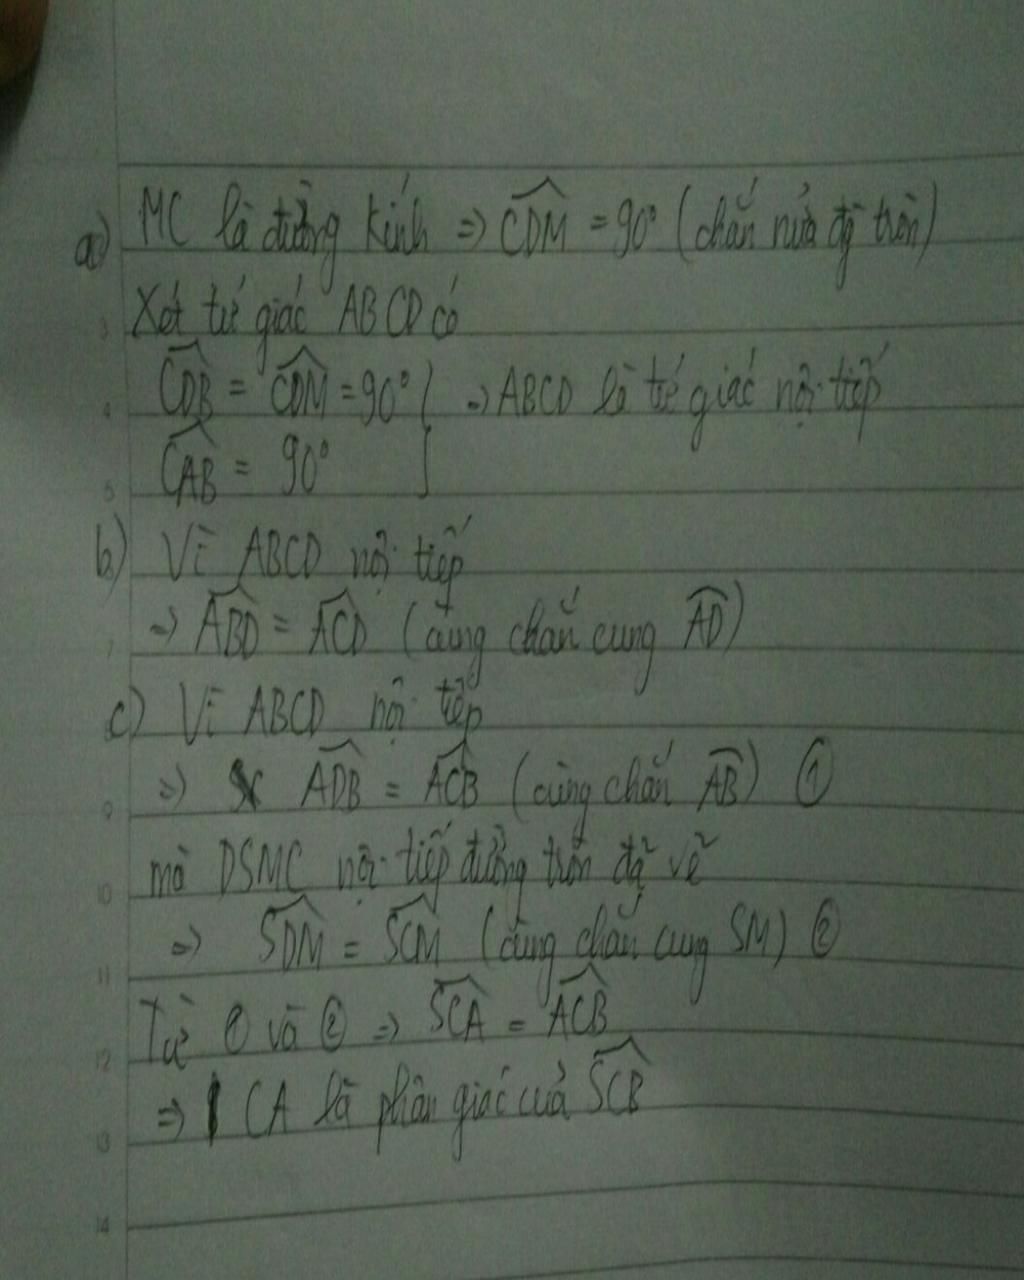 a) MC là đường kính => CDM = 90° (chắn nửa đg tròn)
Xét tứ giác ABCD có
CDB = CDM = 90° } => ABCD là tứ giác nội tiếp
CAB = 90°
b) Vì ABCD nội tiếp
=> ABD = ACD (cùng chắn cung AD)
c) Vì ABCD nội tiếp
=> ADB = ACB (cùng chắn AB) ①
mà DSMC nội tiếp đường tròn đã vẽ
=> SDM = SCM (cùng chắn cung SM) ②
Từ ① và ② => SCA = ACB
=> CA là phân giác của SCB